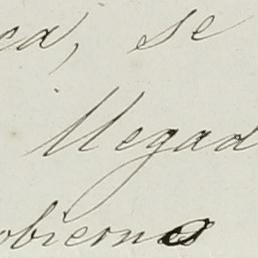 ca, se
llegad
obierno